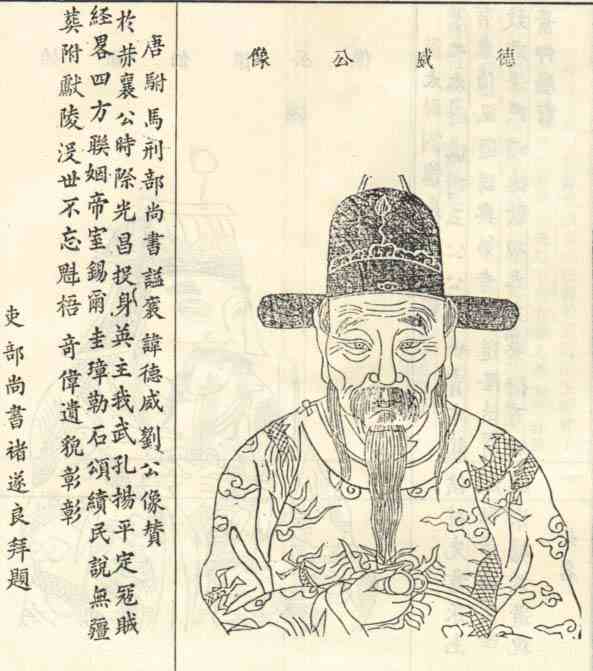 德威公像
唐駙馬刑部尚書謚襄諱德威劉公像贊
於赫襄公時際光昌投身英主我武孔揚平定冦賊
經畧四方聯姻帝室錫爾圭璋勒石頌績民說無疆
葬附獻陵沒世不忘魁梧奇偉遺貌彰彰
吏部尚書褚遂良拜題